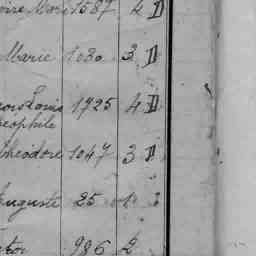 oire Marie 1587 4 D
Marie 1030 3 D
Louis 1725 4 D
éophile
Théodore 1047 3 D
Auguste 25 1
986 2